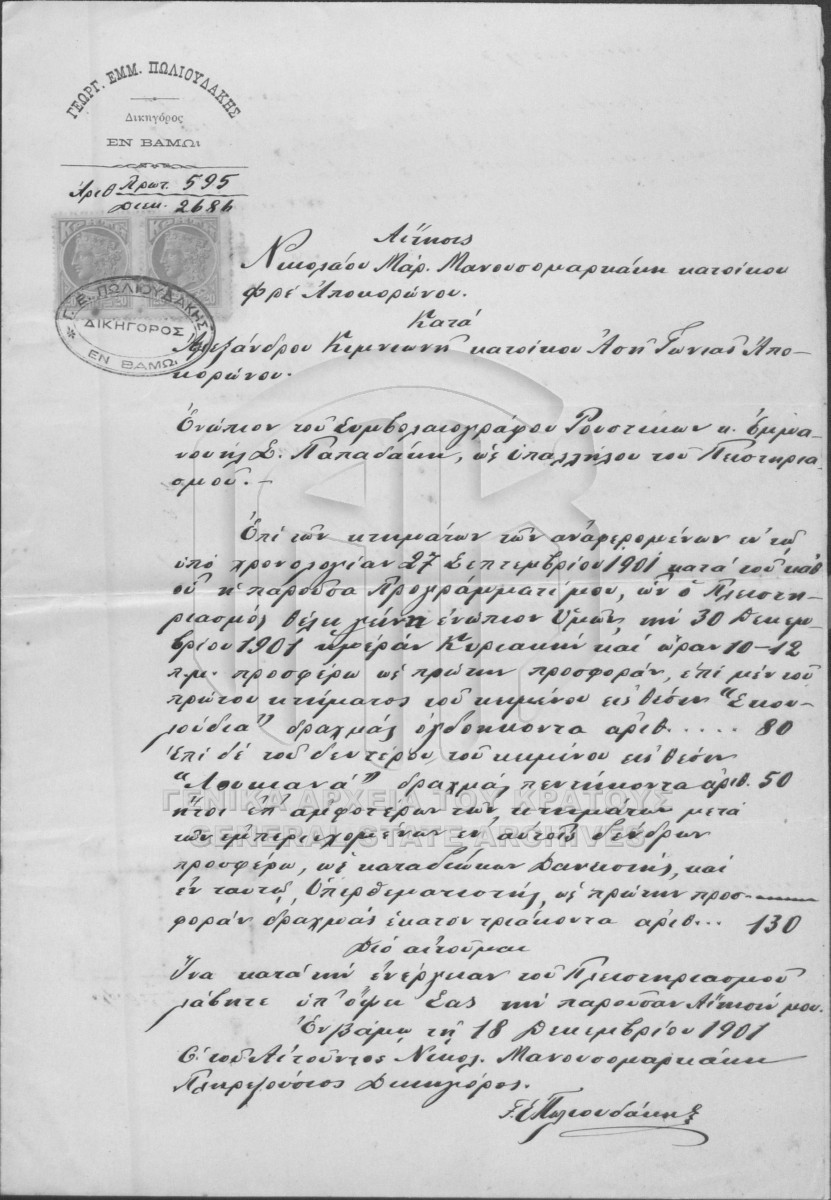 ΓΕΩΡΓ. ΕΜΜ. ΠΩΛΙΟΥΔΑΚΗΣ
Δικηγόρος
ΕΝ ΒΑΜΩι
Ἀριθ Πρωτ. 595
Δικ. 2686
ΚΡΗΤΗ ΚΡΗΤΗ
Γ. Ε. ΠΩΛΙΟΥΔΑΚΗΣ
ΔΙΚΗΓΟΡΟΣ
ΕΝ ΒΑΜΩι
Αἴτησις
Νικολάου Μάρ. Μανουσομαρκάκη κατοίκου
Φρέ Ἀποκορώνου.
Κατά
Ἀλεξάνδρου κατοίκου Ἀσῆ Γωνιᾶς Ἀπο-
κορώνου.
Ἐνώπιον τοῦ Συμβολαιογράφου Ρουστίκων κ. Ἐμμα-
νουήλ Σ. Παπαδάκη, ὡς ὑπαλλήλου τοῦ Πλειστηρια-
σμοῦ. –
Ἐπί τῶν κτημάτων τῶν ἀναφερομένων ἐν τῷ
ὑπό χρονολογίαν 27 Σεπτεμβρίου 1901 κατά τοῦ καθ'
οὗ ἡ παροῦσα Προγράμματί μου, ὧν ὁ Πλειστη-
ριασμός θέλει γείνῃ ἐνώπιον Ὑμῶν, τήν 30 Δεκεμ-
βρίου 1901 ἡμέραν Κυριακήν καί ὥραν 10–12
π.μ. προσφέρω ὡς πρώτην προσφοράν, ἐπί μέν τοῦ
πρώτου κτήματος τοῦ κειμένου εἰς θέσιν "Σκου-
λούδια" δραχμάς ὀγδοήκοντα ἀριθ. ..... 80
ἐπί δέ τοῦ δευτέρου τοῦ κειμένου εἰς θέσιν
δραχμάς πεντήκοντα ἀριθ. 50
ἤτοι ἐπ' ἀμφοτέρων τῶν κτημάτων μετά
τῶν ἐμπεριεχομένων ἐν αὐτοῖς δένδρων
προσφέρω, ὡς καταδιώκων Δανειστής, καί
ἐν ταυτῷ Ὑπερθεματιστής, ὡς πρώτην προσ-
φοράν δραχμάς ἑκατόν τριάκοντα ἀριθ... 130
Διό αἰτοῦμαι
Ἵνα κατά τήν ἐνέργειαν τοῦ Πλειστηριασμοῦ
λάβητε ὑπ' ὄψει Σας τήν παροῦσαν Αἴτησίν μου.
Ἐν Βάμῳ τῇ 18 Δεκεμβρίου 1901
Ὁ τοῦ Αἰτοῦντος Νικολ. Μανουσομαρκάκη
Πληρεξούσιος Δικηγόρος.
Γ. Ε. Πωλιουδάκης
ΓΕΝΙΚΑ ΑΡΧΕΙΑ ΤΟΥ ΚΡΑΤΟΥΣ
GENERAL STATE ARCHIVES